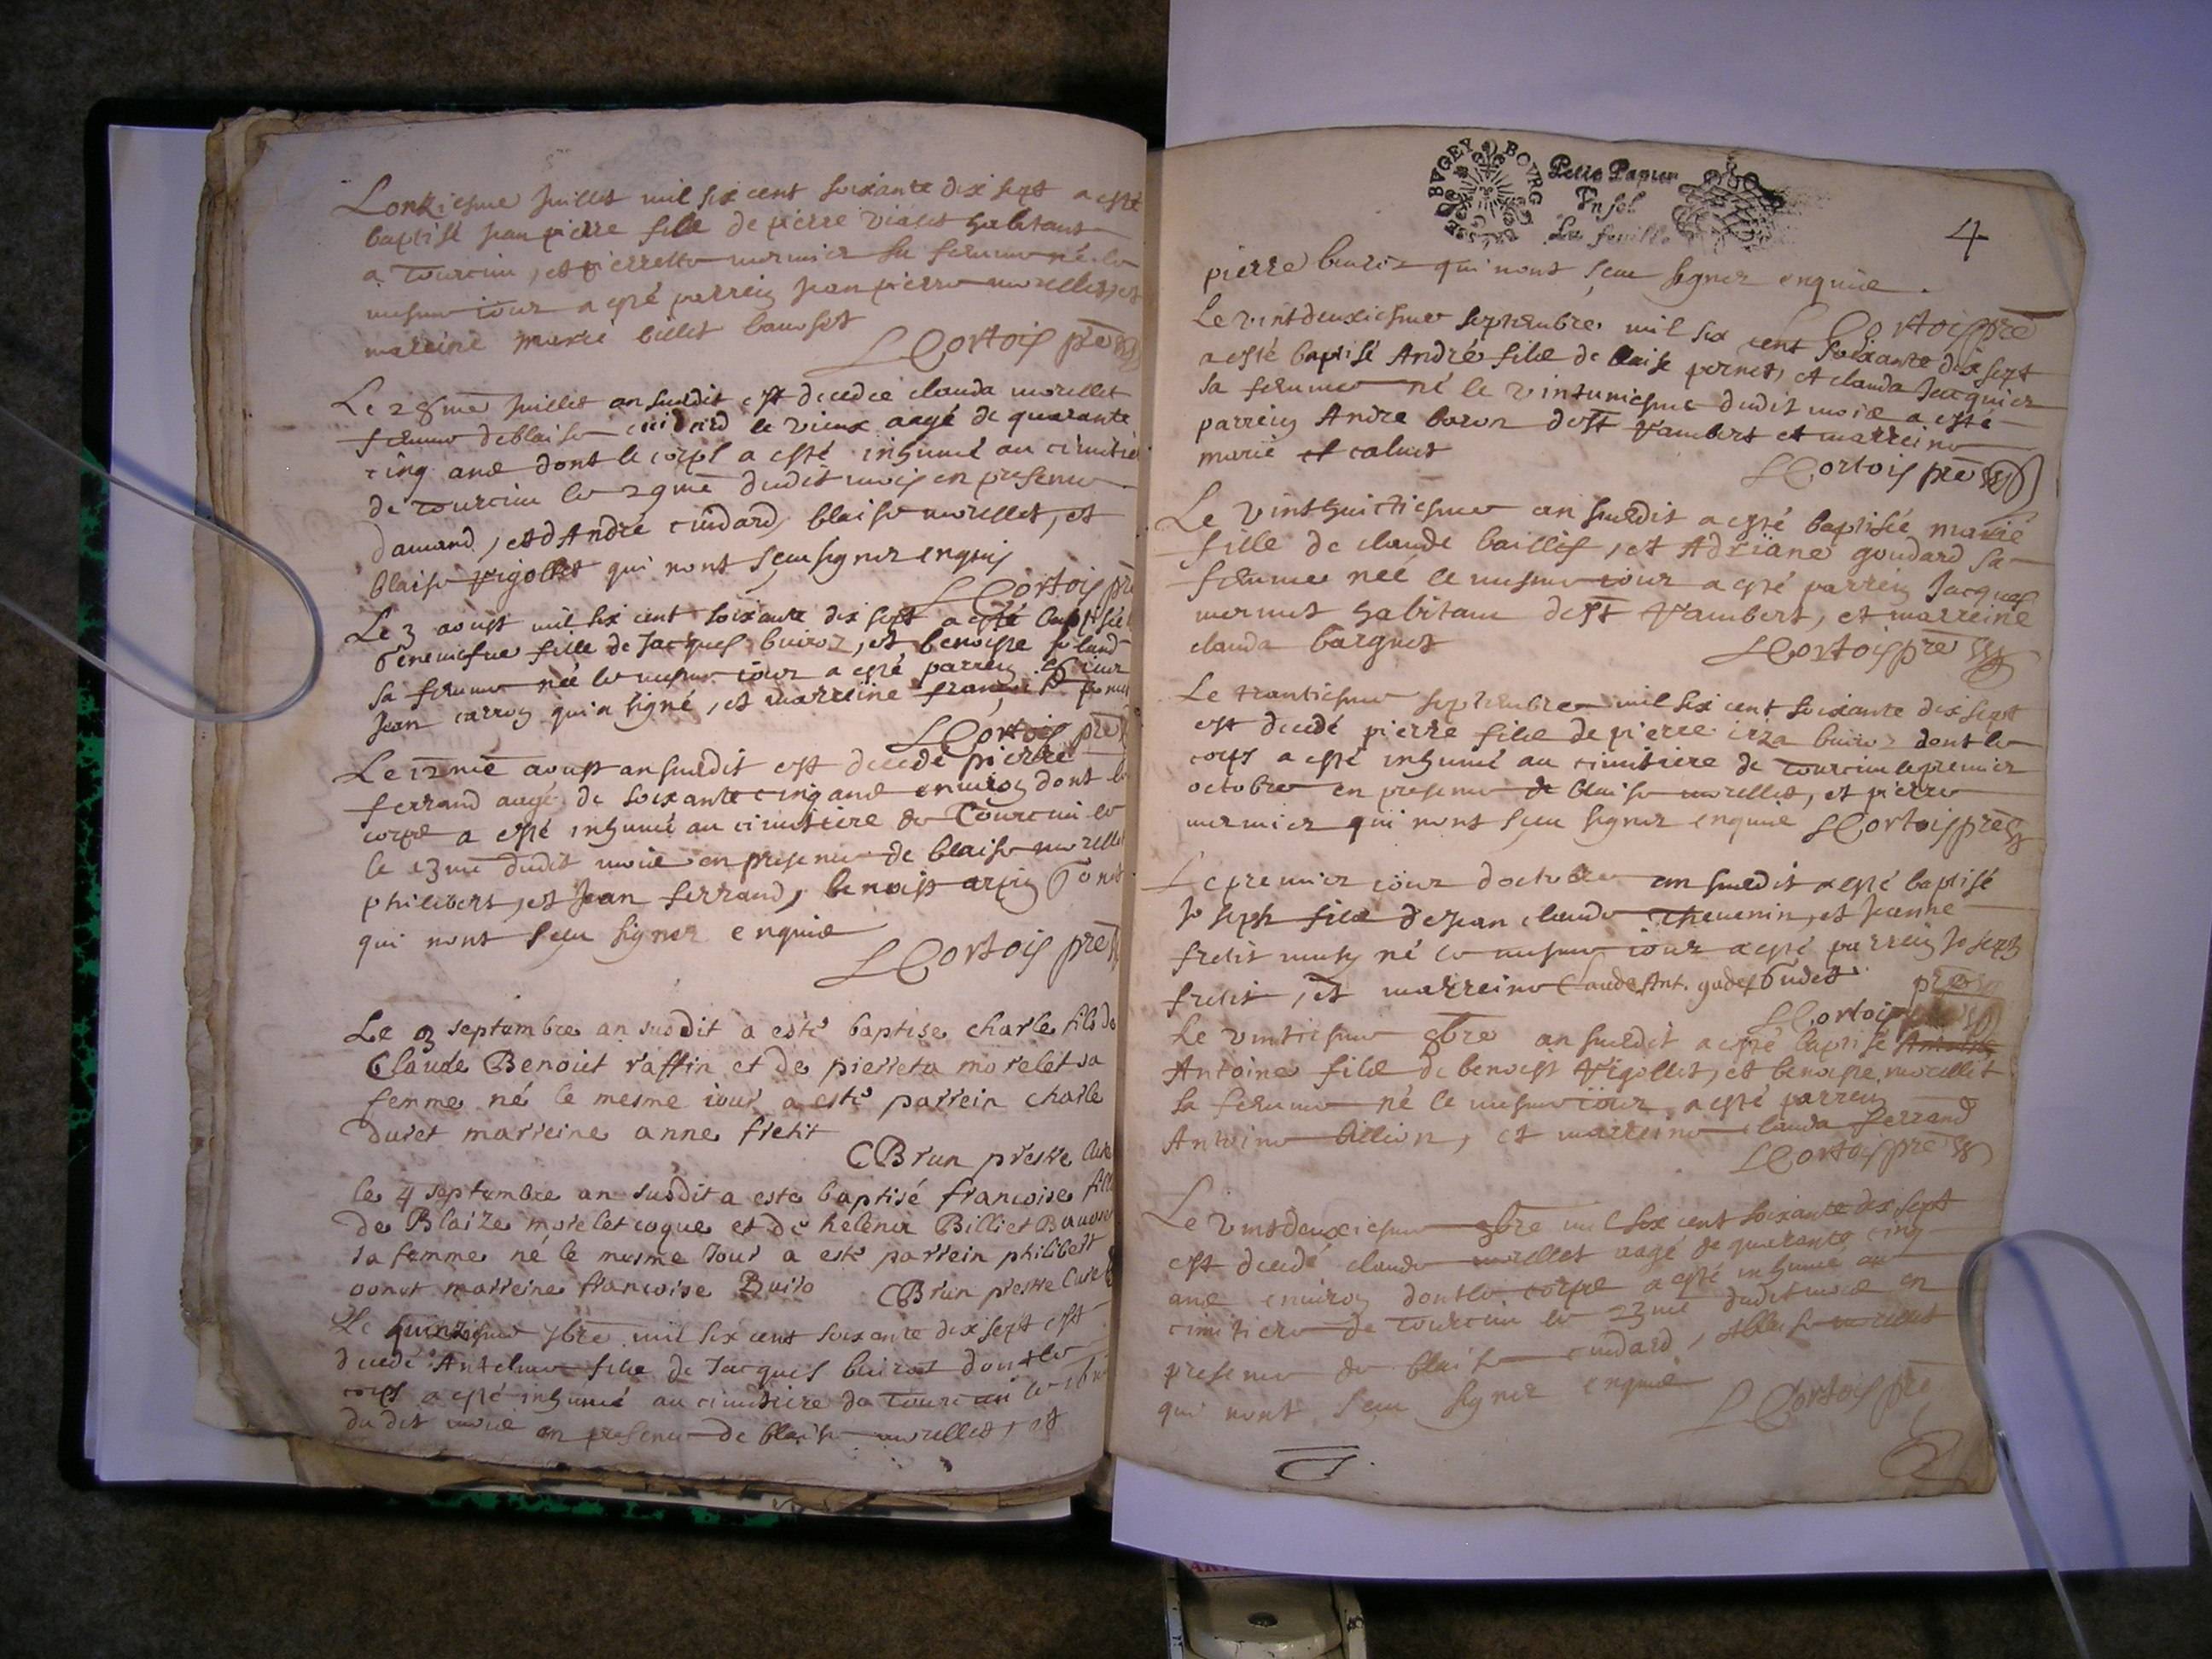 Lonziesme Juillet mil six cent soixante dix sept a esté
baptisé Jean pierre filz de pierre vialet habitant
a Tourcieu, et pierrette mermier sa femme né le
mesme iour a esté parrein Jean pierre morellet, et
marreine marie billet
LCortois pre
Le 28me Juillet an susdit est decedée clauda morellet
femme de blaise cuidard le vieux aagé de quarante
cinq ans dont le corps a esté inhumé au cimitiere
de Tourcieu le 29me dudit mois en presence
damand, et d'André cuidard, blaise morellet, et
blaise Vigollet qui nont sceu signer enquis
LCortois pre
Le 3 aoust mil six cent soixante dix sept a esté baptisée
fille de Jacques buiroz, et benoiste
sa femme née le mesme iour a esté parrein
Jean carron qui a signé, et marreine françoise
LCortois pre
Le 12me aoust an susdit est decedé pierre
ferrand aagé de soixante cinq ans enuiron dont le
corps a esté inhumé au cimitiere de Tourcieu le
le 13me dudit mois en presence de blaise morellet
philibert, et Jean ferrand, benoist arpin
qui nont sceu signer enquis
LCortois pre
Le 3 septembre an susdit a esté baptise charle fils de
Claude Benoit raffin et de pierreta morelet sa
femme né le mesme iour a esté parrein charle
duret marreine anne fretit
CBrun prestre Curé
le 4 septembre an susdit a este baptisé francoise fille
de Blaize morelet coque et de helenne Billiet
sa femme né le mesme Jour a esté parrein philibert
marreine francoise Buiro CBrun prestre Curé
Le quinziesme 7bre mil six cent soixante dix sept est
decedé Antelme filz de Jacques buiroz dont le
corps a esté inhumé au cimitiere de Tourcieu le
dudit mois en presence de blaise morellet, et
BVGEY BOVRG
Petit Papier
Un sol
La feuille
4
pierre buiroz qui nont sceu signer enquis.
LCortois pre
Le vint deuxiesme septembre mil six cent soixante dix sept
a esté baptisé André filz de blaise pernet, et clauda Jacquier
sa femme né le vintuniesme dudit mois a esté
parrein Andre baron de St Vambert et marreine
marie calmet
LCortois pre
Le vinthuictiesme an susdit a esté baptisée marie
fille de claude baillif, et Adriane goudard sa
femme née le mesme iour a esté parrein Jacques
mermet habitant de St Vambert, et marreine
clauda barguet
LCortois pre
Le trantiesme septembre mil six cent soixante dix sept
est decedé pierre filz de pierre buiroz dont le
corps a esté inhumé au cimitiere de Tourcieu le premier
octobre en presence de blaise morellet, et pierre
mermier qui nont sceu signer enquis LCortois pre
Le premier iour d'octobre an susdit a esté baptisé
Joseph filz de Jean claude Theuenin, et Jeanne
fretit né le mesme iour a esté parrein Joseph
fretit, et marreine
LCortois pre
Le vintiesme 8bre an susdit a esté baptisé
Antoine filz de benoist Vigollet, et benoiste morellet
sa femme né le mesme iour a esté parrein
Antoine billion, et marreine clauda ferrand
LCortois pre
Le vintdeuxiesme mil six cent soixante dix sept
est decedé claude morellet aagé de quarante cinq
ans enuiron dont le corps a esté inhumé au
cimitiere de Tourcieu le 23me dudit mois en
presence de blaise cuidard, et blaise morellet
qui nont sceu signer enquis
LCortois pre